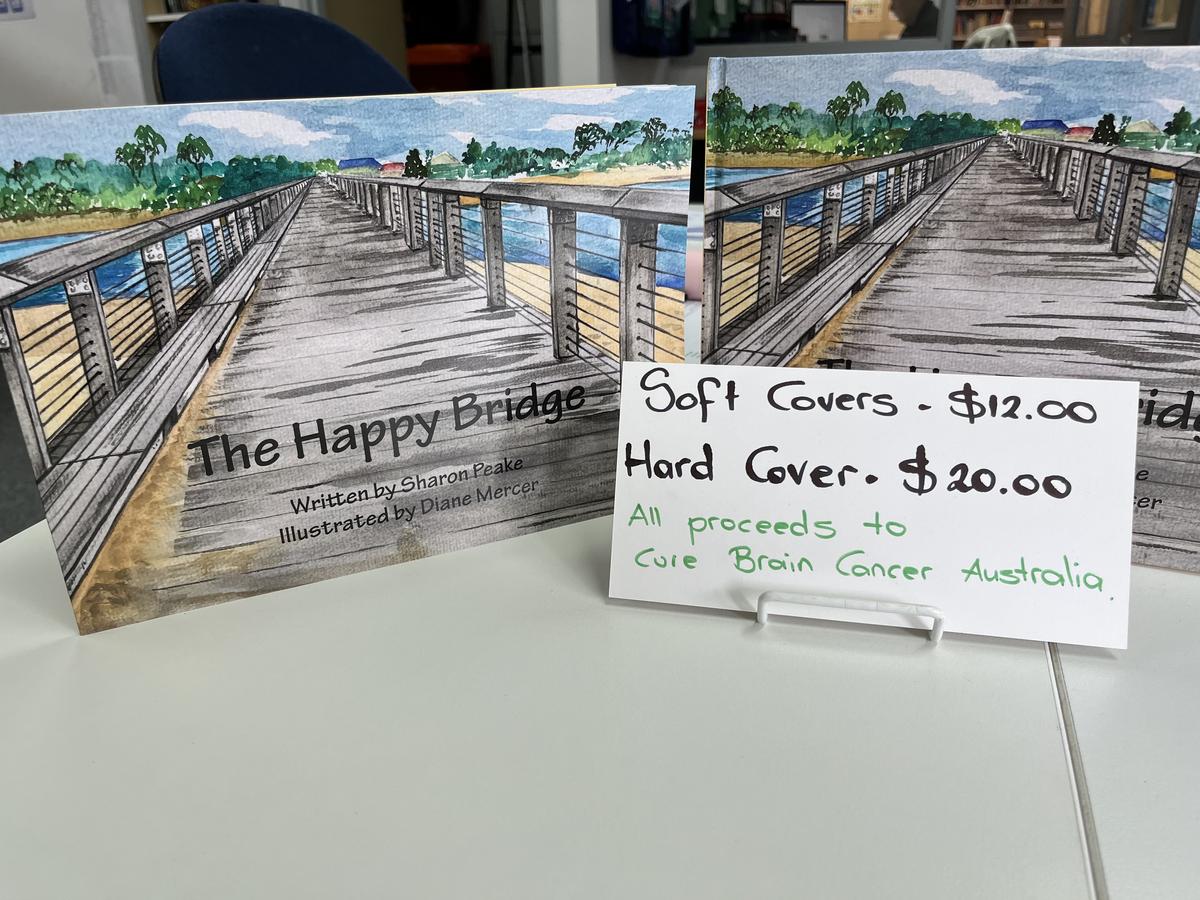 The Happy Bridge
Written by Sharon Peake
Illustrated by Diane Mercer
Soft Covers - $12.00
Hard Cover. $20.00
All proceeds to
Cure Brain Cancer Australia.